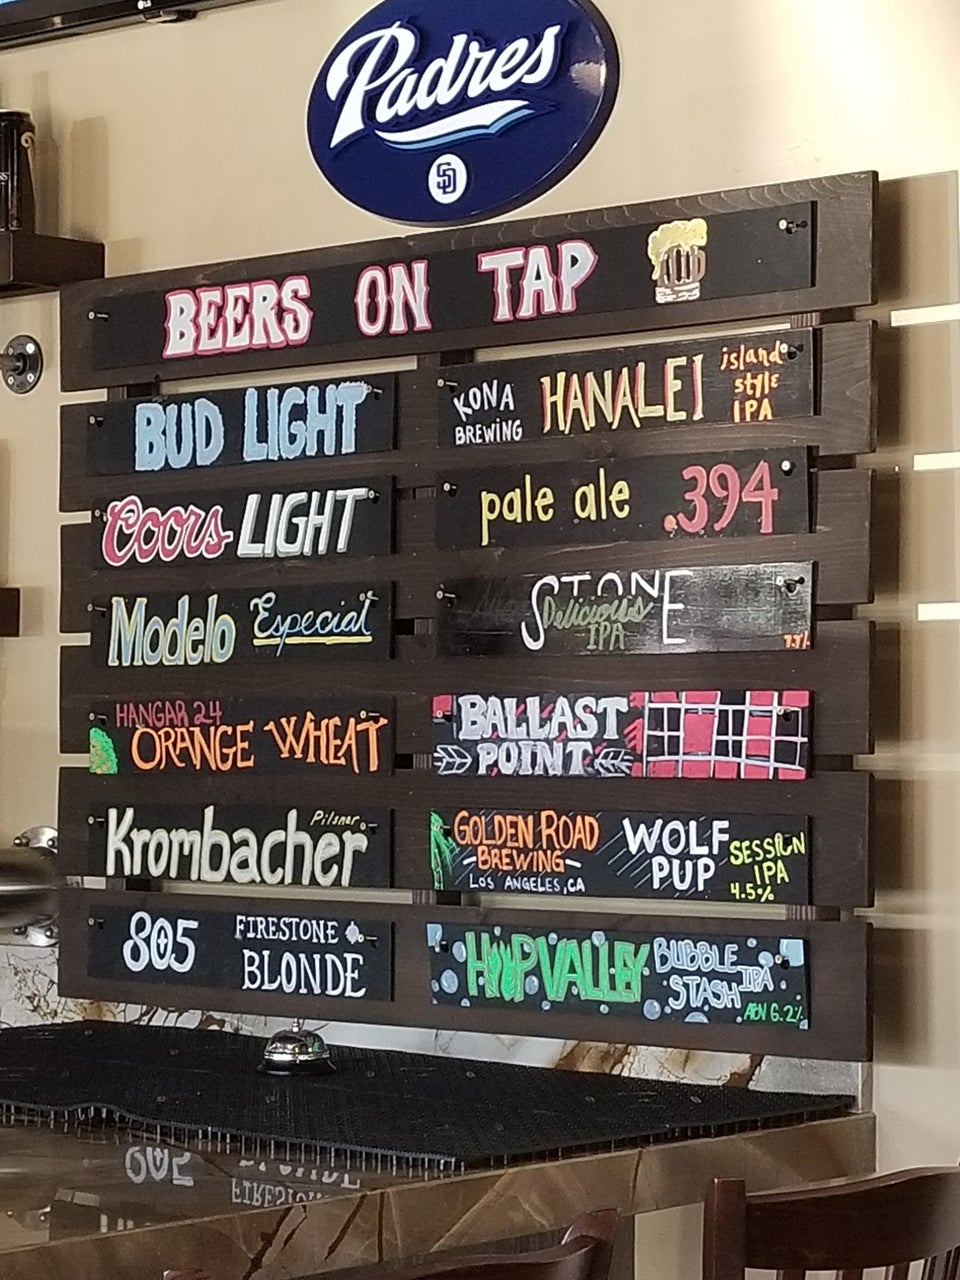 Padres
SD
BEERS ON TAP
BUD LIGHT
Coors LIGHT
Modelo Especial
HANGAR 24
ORANGE WHEAT
Pilsner
Krombacher
805 FIRESTONE
BLONDE
KONA
BREWING
HANALEI
island
style
IPA
pale ale .394
STONE
Delicious
IPA
7.7%
BALLAST
POINT
GOLDEN ROAD
BREWING
LOS ANGELES, CA
WOLF
PUP
SESSION
IPA
4.5%
HOP VALLEY
BUBBLE
STASH IPA
ABV 6.2%
805 FIRESTONE
BLONDE